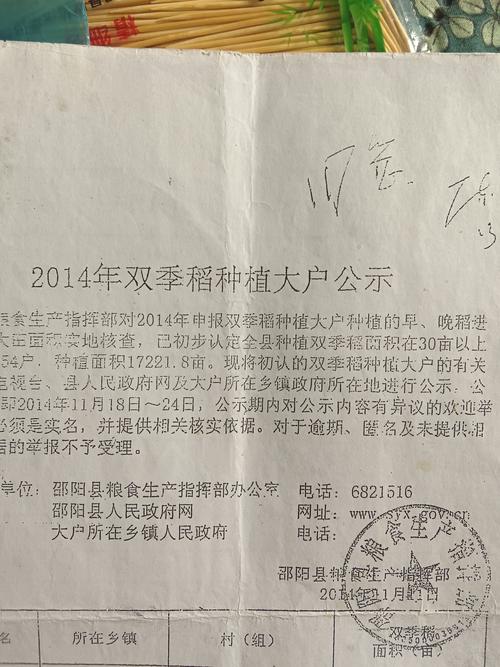 同意
2014年双季稻种植大户公示
粮食生产指挥部对2014年申报双季稻种植大户种植的早、晚稻进
大田面积实地核查，已初步认定全县种植双季稻面积在30亩以上
54户，种植面积17221.8亩。现将初认的双季稻种植大户的有关
电视台、县人民政府网及大户所在乡镇政府所在地进行公示。公
即2014年11月18日～24日，公示期内对公示内容有异议的欢迎举
必须是实名，并提供相关核实依据。对于逾期、匿名及未提供相
据的举报不予受理。
单位：邵阳县粮食生产指挥部办公室 电话：6821516
邵阳县人民政府网 网址：www.syx.gov.cn
大户所在乡镇人民政府 电话：
邵阳县粮食生产指挥部
2014年11月21日
名 所在乡镇 村（组） 双季稻
面积（亩）